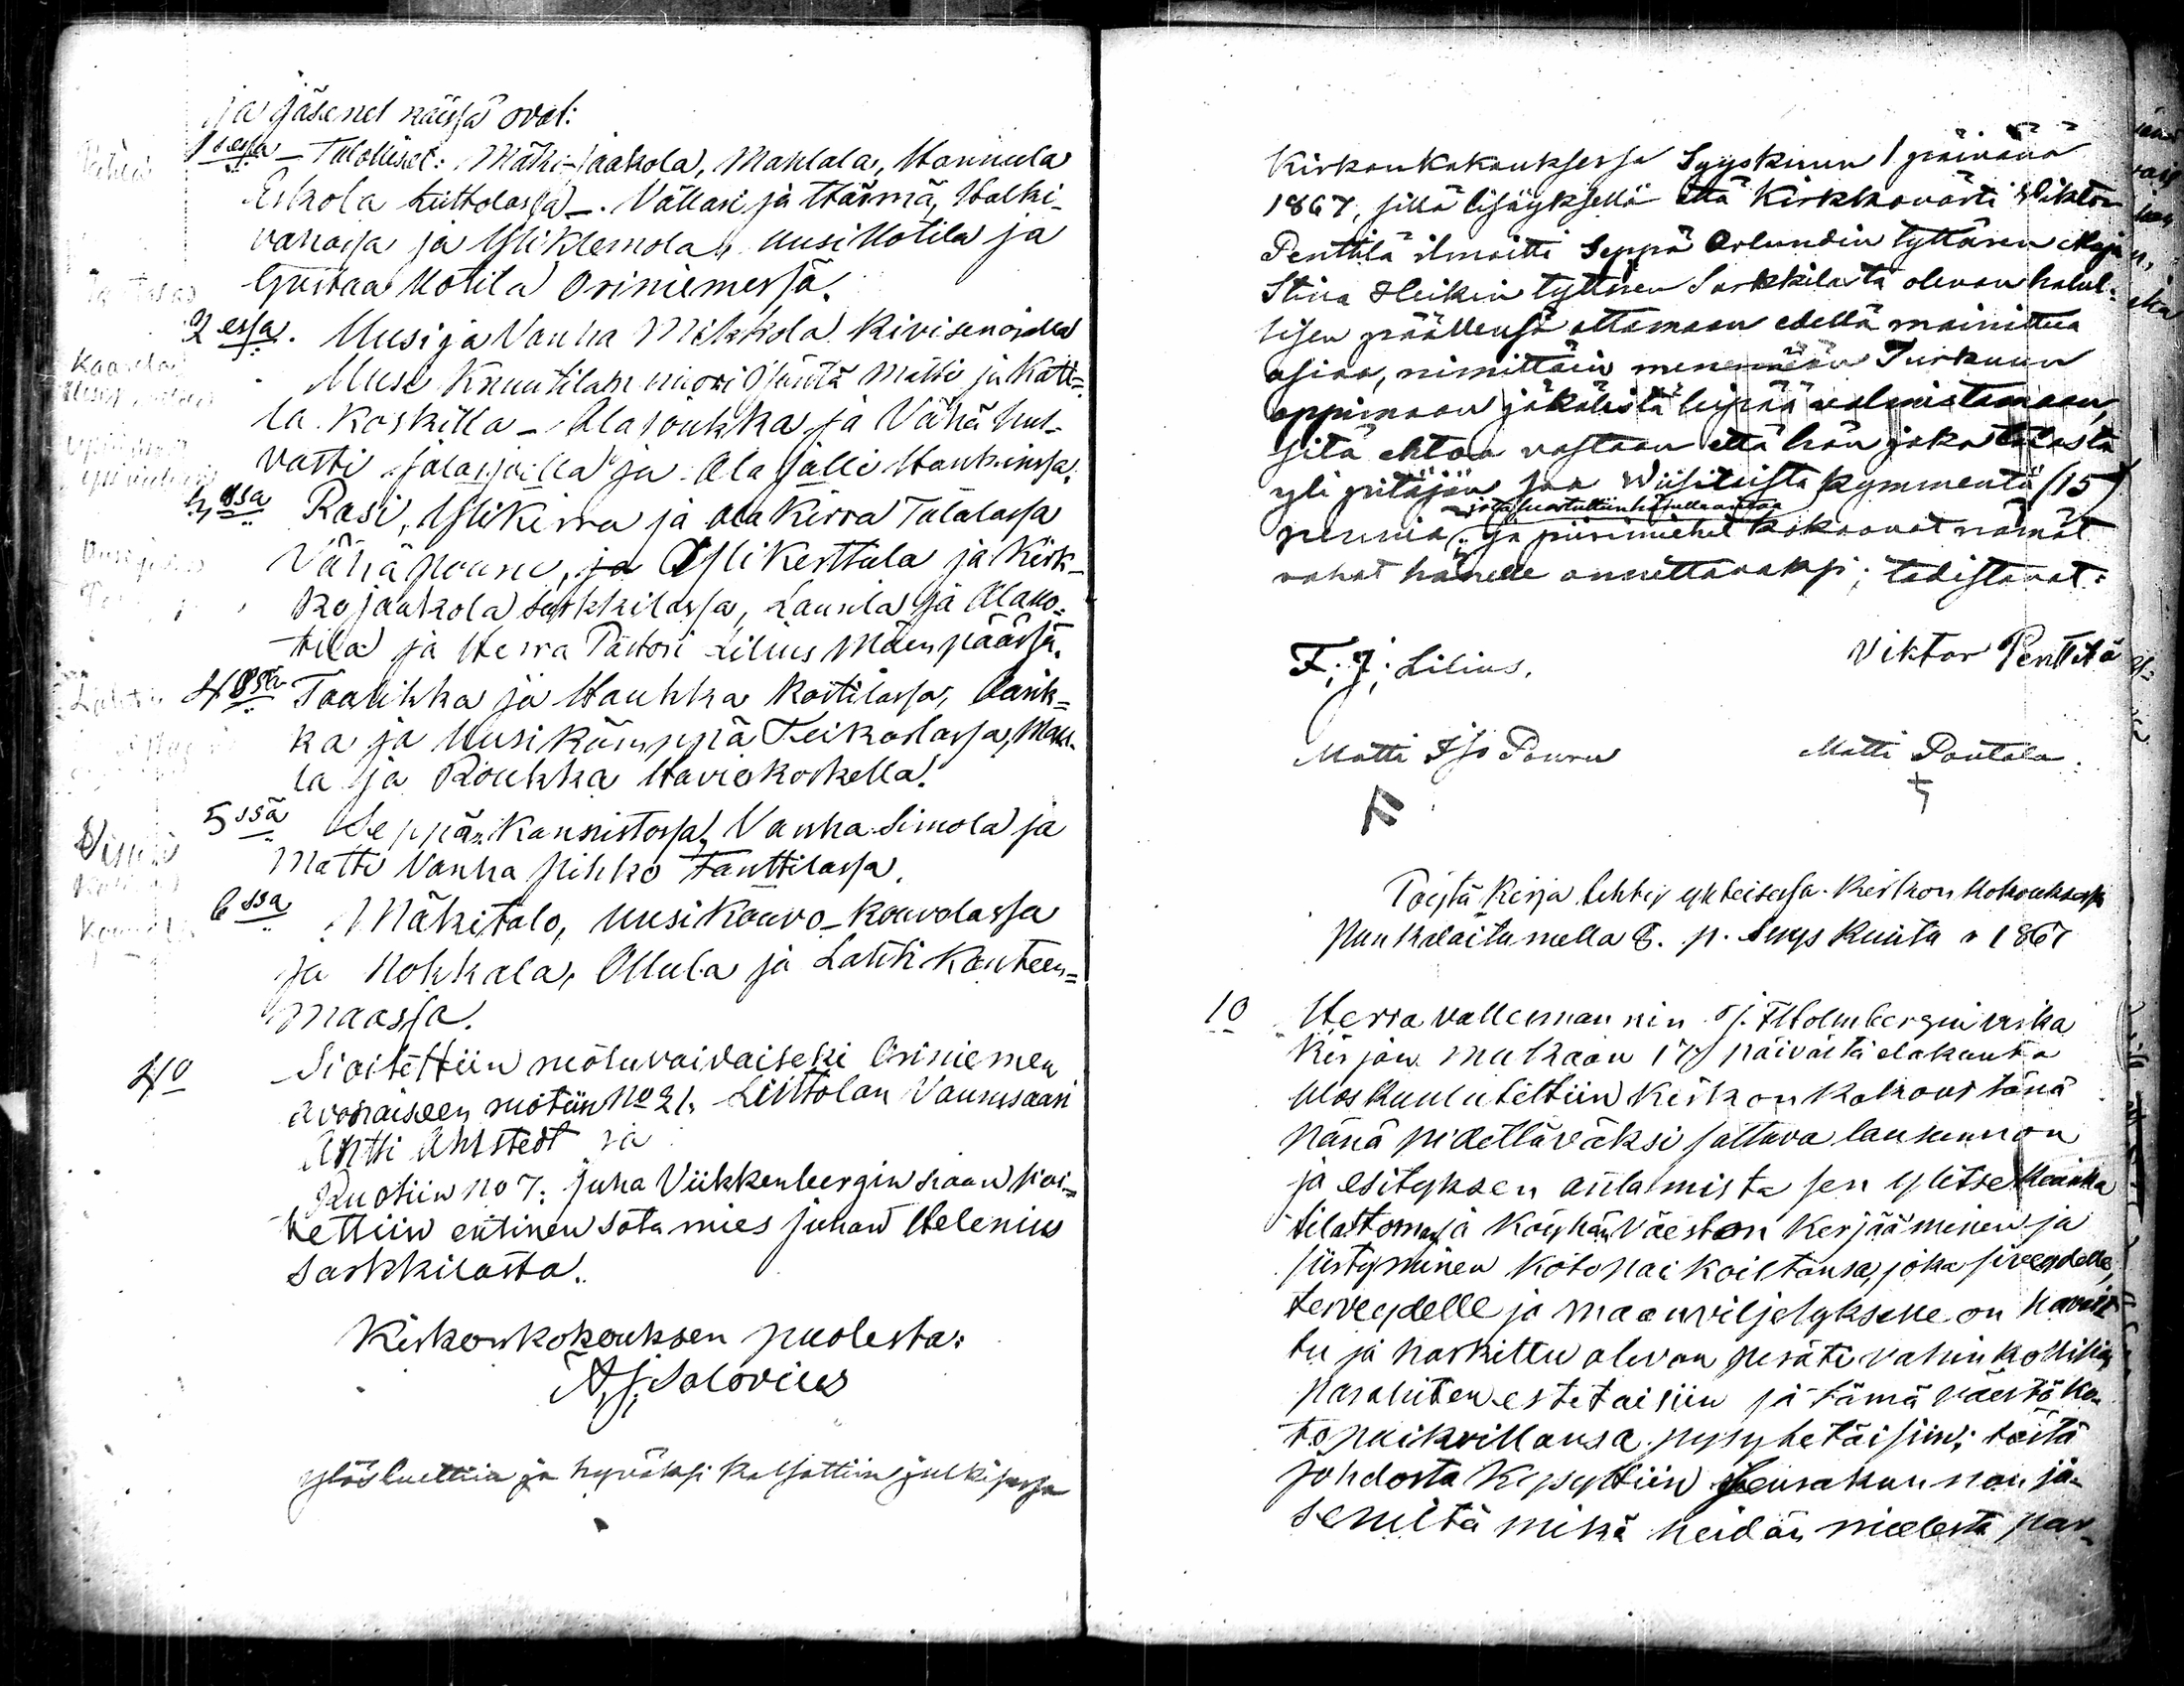 ja jäsenet näissä ovat:
1sessa – Talolliset: Mäki-Jaakola, Mahlala, Hannula
Eskola Liittolassa –. Vällari ja Härmä, Halki-
vahassa ja Yliklemola, Uusi Motila ja
Gustaa Motila Oriniemessä.
2 essa. Uusi ja Vanha Mikkola Kivisenojalla
Uusi Knuutilan nuori isäntä Matti ja Kati-
la Koskilla – Alasoukka ja Vähä Hur-
vatti Jalasjoilla ja Ala Jalli Hankurissa.
3 ssa Rasi, Ylikirra ja Alakirra Talalassa
Vähäpouru, ja Ylikerttula ja Kirk-
kojaakola Sarkkilassa, Laurila ja Alamo-
tila ja Herra Pastori Lilius Mäenpäässä.
4 ssä Taarikka ja Haukka Kostilassa, Aarik-
ka ja Uusikämppä Teikarlassa,
la ja Roukka Haviokoskella.
5 ssä Seppä Kannistossa, Vanha Simola ja
Matti Vanha Pihko Tanttilassa.
6 ssa Mäkitalo, Uusikouvo – Kouvolassa
ja Nokkala, Ollula ja Lahti Kanteen-
maassa.
4o Sioitettiin ruotuvaivaiseksi Oriniemen
avonaiseen ruotiin No 21. Liittolan Vanusaari
Antti Ahlstedt ja
Ruotiin No 7. Juha Viikkenbergin siaan sioi-
tettiin entinen sotamies Juhan Helenius
Sarkkilasta.
Kirkonkokouksen puolesta:
A. J. Salovius
ylösluettiin ja hyväksi katsottiin julkisessa
Kirkonkokouksessa Syyskuun 1 päivänä
1867, sillä lisäyksellä että Kirkkovärti Viktor
Penttilä ilmoitti Seppä Orlundin tyttären Maja
Stina Heikin tyttären Sarkkilasta olevan halul-
lisen päällensä ottamaan edellä mainittua
asiaa, nimittäin menemään Turkuun
oppimaan jäkälistä leipää valmistamaan,
sitä ehtoa vastaan että hän joka talosta
yli pitäjän saa Wiisitoista kymmentä (15)
joka suostuttiin hänelle antaa
penniä, ja piirimiehet kokoovat nämät
rahat hänelle annettavaksi; todistavat:
F. J. Lilius. Viktor Penttilä
Matti Iso Pouru Matti Pautola.
Pöytä Kirja tehty yhteisessä Kirkon Kokouksessa
Punkalaitumella 8. p. Syys Kuuta 1867
1o Herra vallesmannin J. F. Holmbergin virka
kirjan mukaan 17 päivästä elokuuta
uloskuulutettiin kirkonkokous tänä
pänä pidettäväksi sattuva lausunnon
ja esityksen antamista sen ylitse kuinka
tilattoman ja köyhän väestön kerjääminen ja
siirtyminen kotopaikoiltansa, joka siveydelle,
terveydelle ja maanviljelykselle on havait-
tu ja harkittu olevan peräti vahinkollinen
parahiten estetäisiin ja tämä väestö ko-
topaikoillansa pysytetäisiin; tästä
johdosta kysyttiin Seurakunnan jä-
seniltä mikä heidän mielestä par-